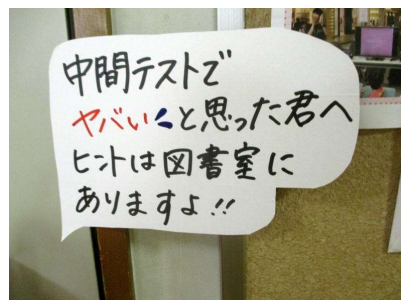 中間テストで
ヤバいと思った君へ
ヒントは図書室に
ありますよ!!